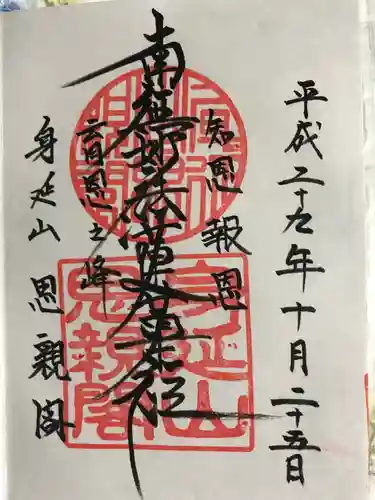 平成二十九年十月二十五日
知恩報恩
南無妙法蓮華経
育恩之峰
身延山 思親閣
身延山
思親閣